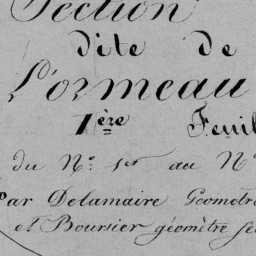 Section
dite de
L'ormeau
1ère Feuil
du N° 1er au N°
Par Delamaire Géomètr
et Boursier géomètre se